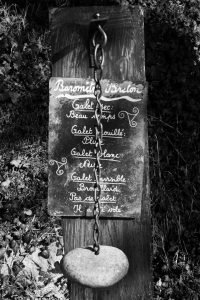 Baromètre Breton
Galet sec:
Beau temps
Galet mouillé:
Pluie
Galet blanc
Neige
Galet invisible
Brouillard
Pas de Galet
Il a été volé